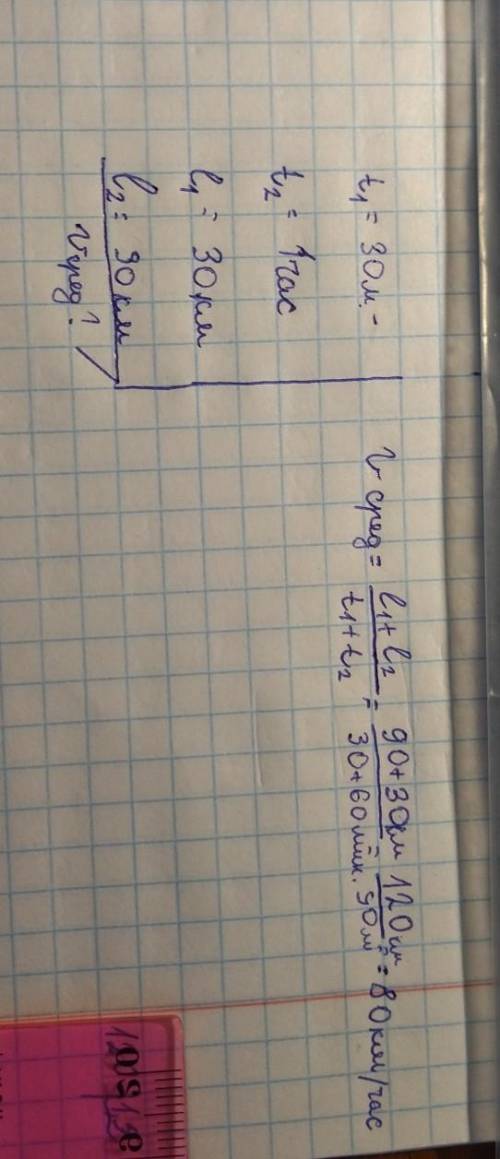 t₁ = 30 м. -
t₂ = 1 час
l₁ = 30 км
l₂ = 90 км
v сред?
v сред = (l₁ + l₂)/(t₁ + t₂) = (90 + 30 км)/(30 + 60 мин.) = (120 км)/(90 м) = 80 км/час